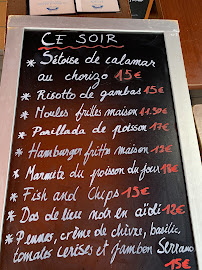 CE SOIR
* Sétoise de calamar
au chorizo 15€
* Risotto de gambas 15€
* Moules frites maison 11.50€
* Parillada de poisson 17€
* Hamburger frites maison 12€
* Marmite du poisson du jour 18€
* Fish and Chips 15€
* Dos de lieu noir en aïoli 12€
* Pennes, crème de chèvre, basilic,
tomates cerises et jambon Serrano
15€